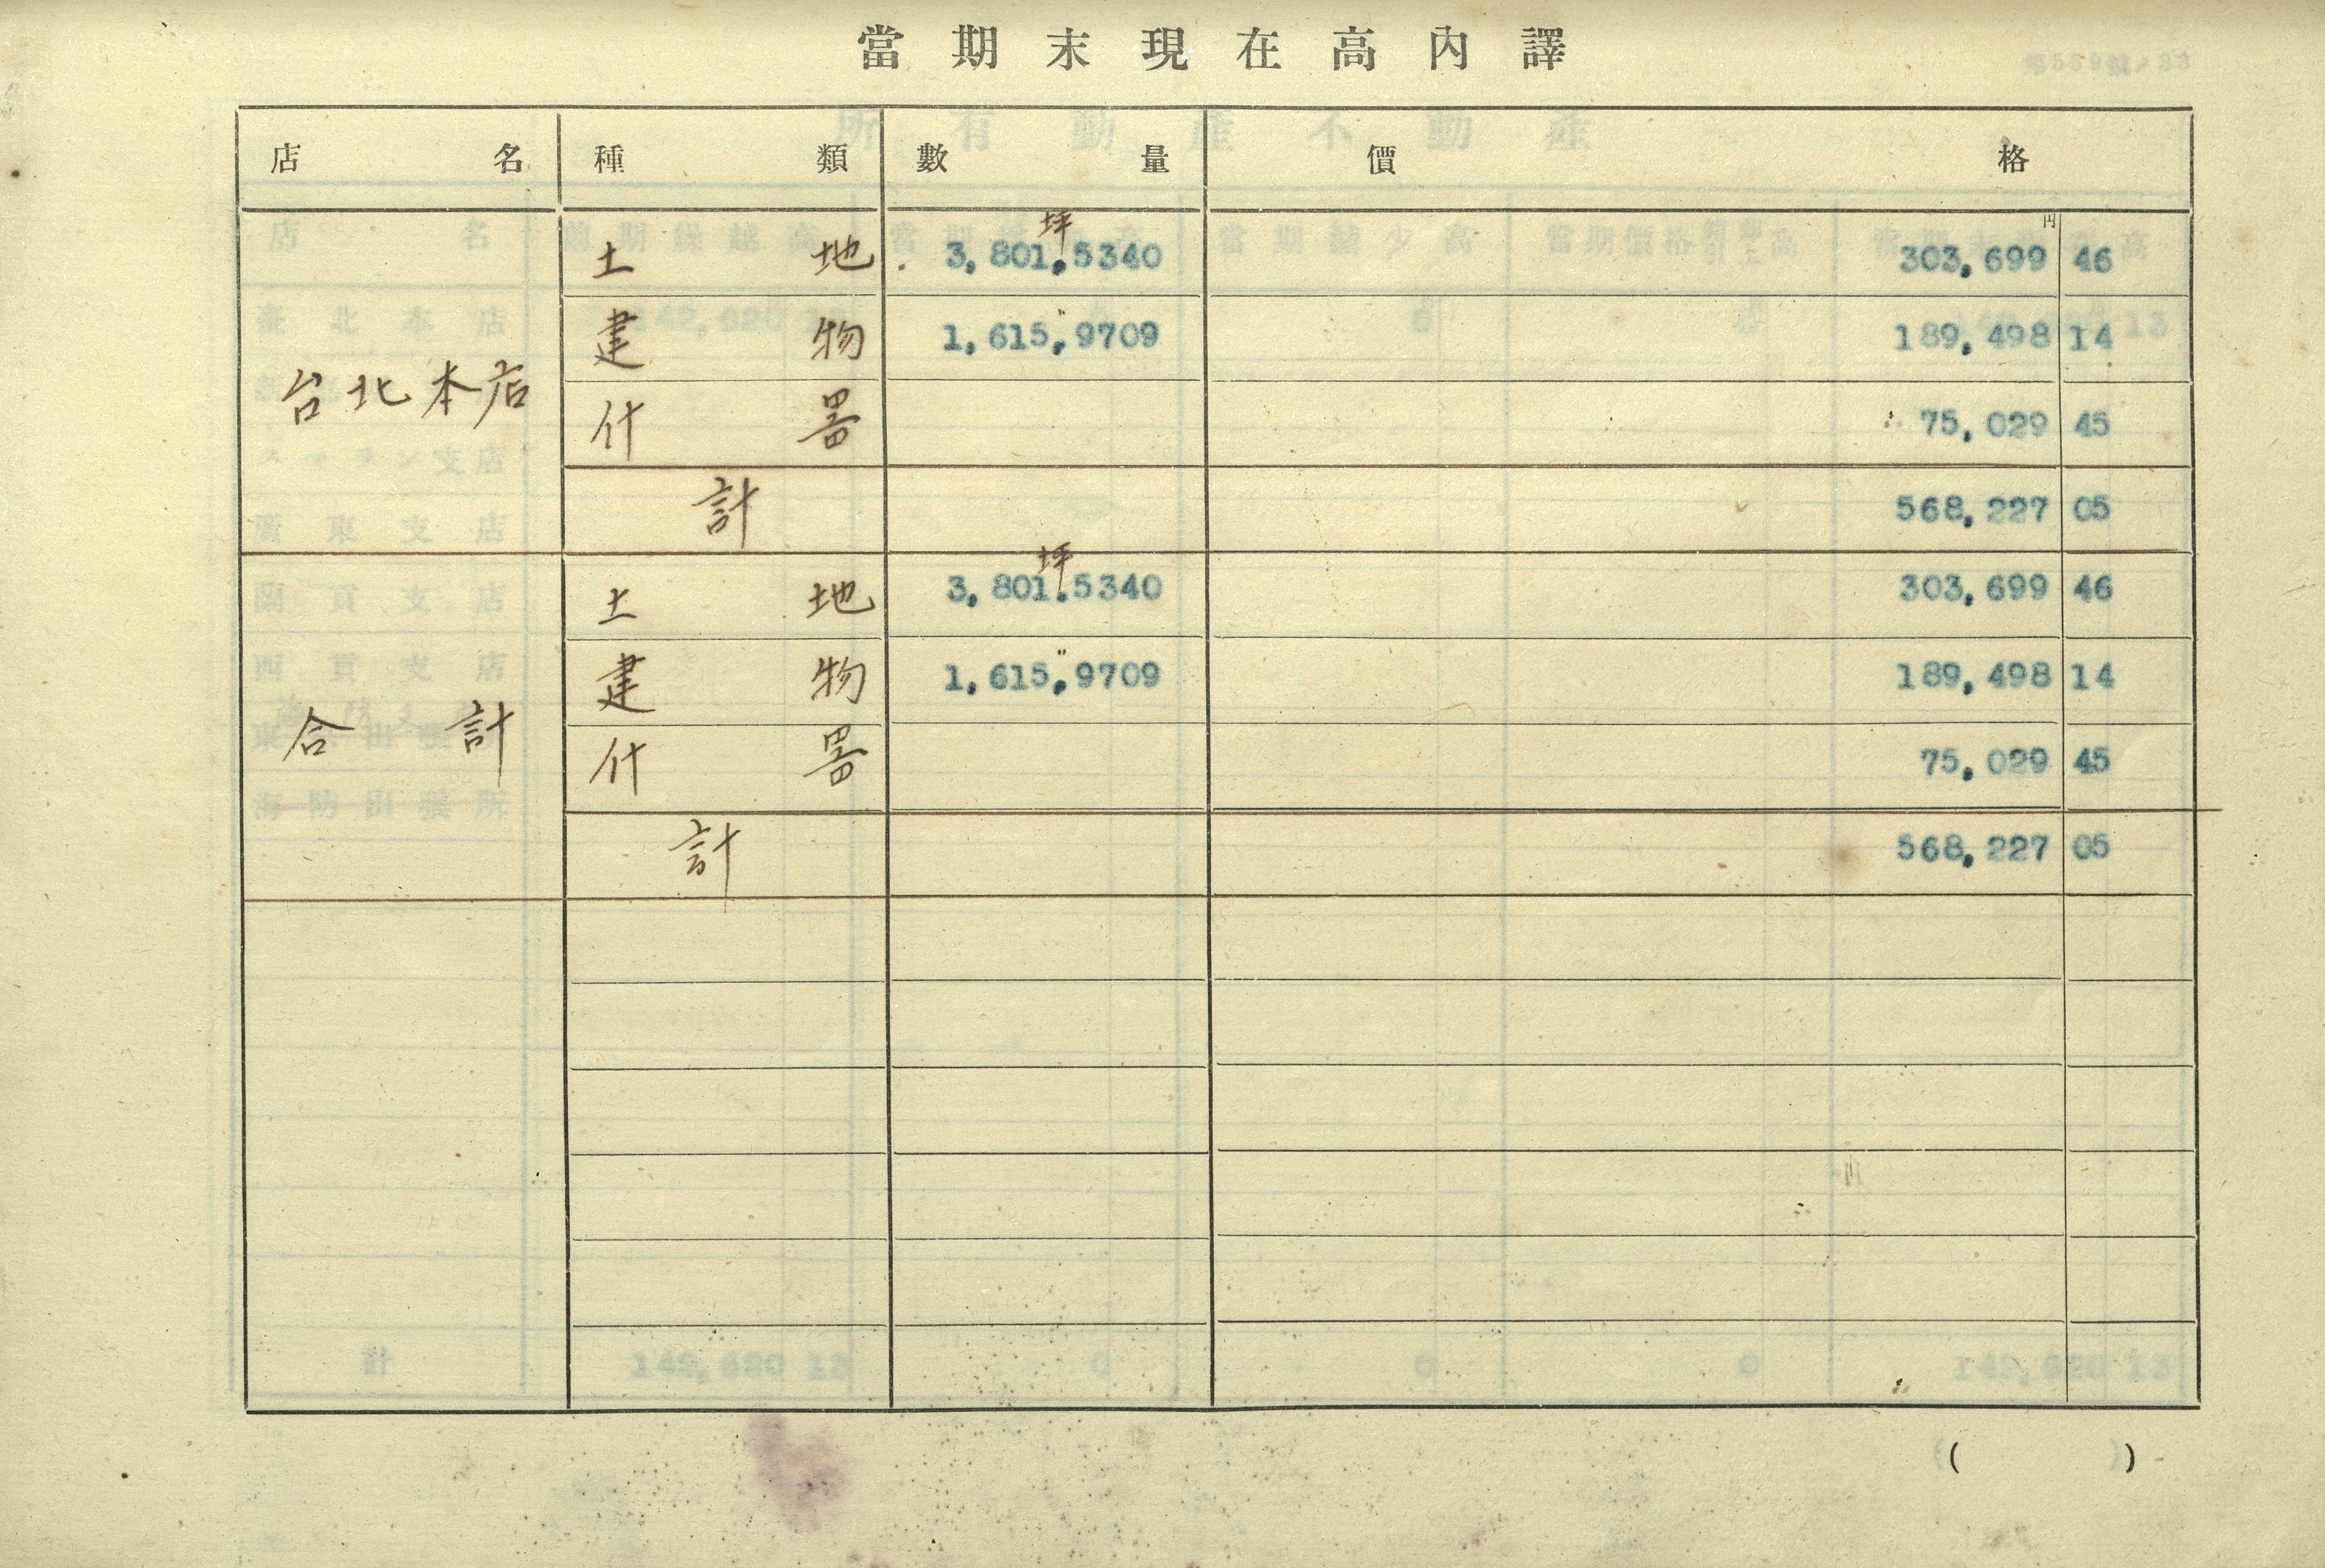 當期末現在高內譯
店名 種類 數量 價格
土地 3,801.5340坪 303,699円 46
建物 1,615.9709〃 189,498 14
台北本店
什器 75,029 45
計 568,227 05
土地 3,801.5340坪 303,699 46
建物 1,615.9709〃 189,498 14
合計
什器 75,029 45
計 568,227 05
( )